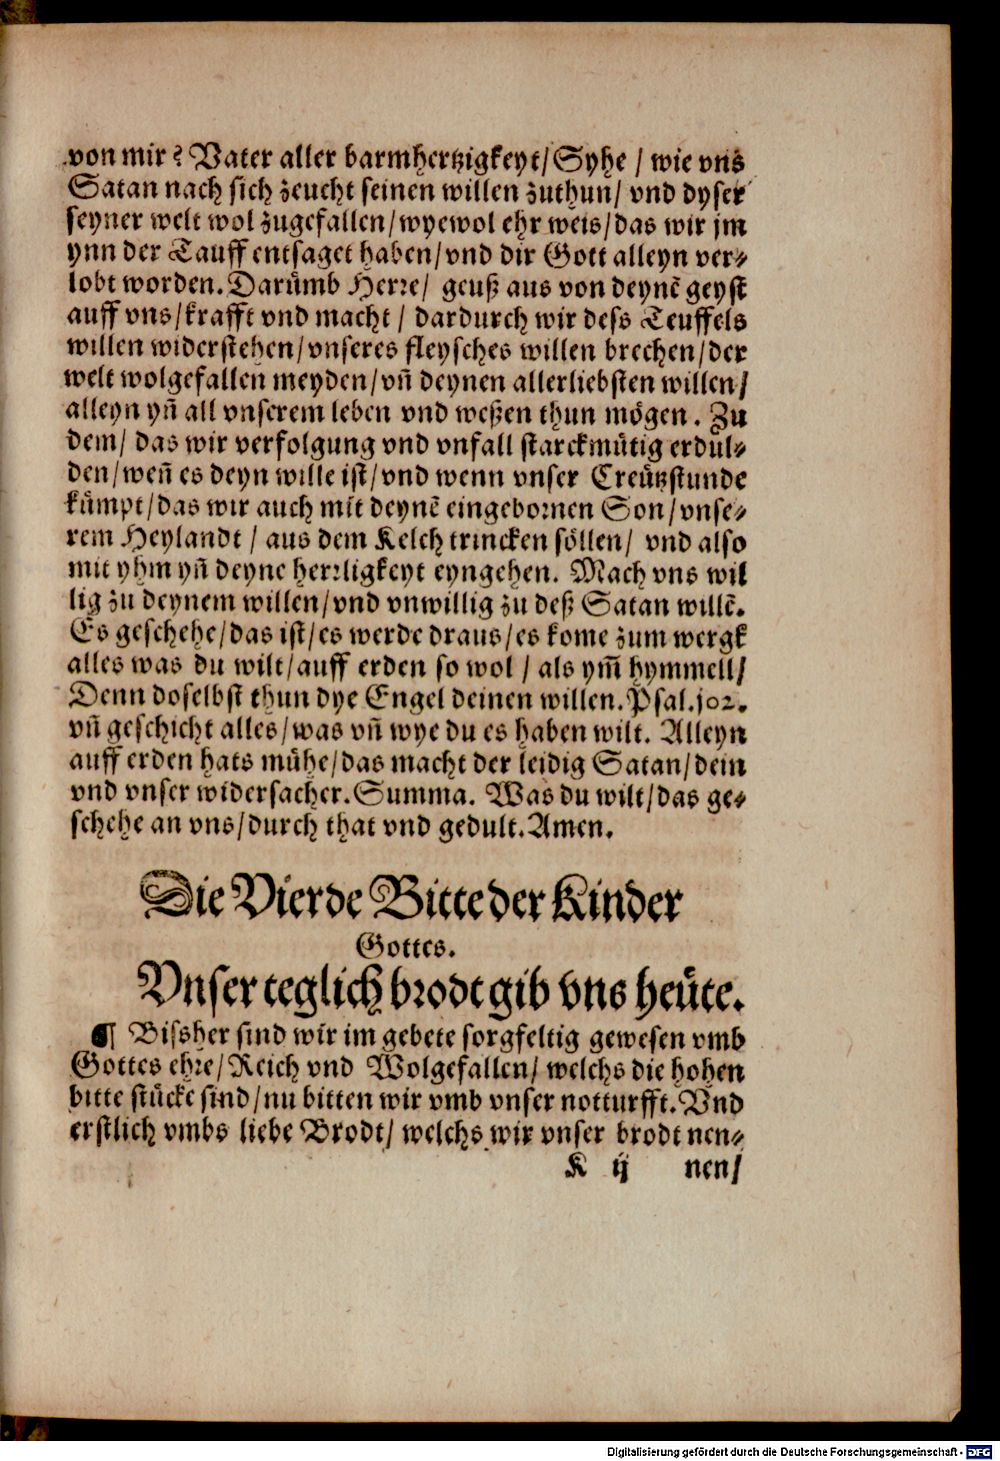 von mir? Vater aller barmhertzigkeyt/Syhe / wie vns
Satan nach sich zeucht seinen willen zuthun/ vnd dyser
seyner welt wol zugefallen/wyewol ehr weis/das wir jm
ynn der Tauff entsaget haben/vnd dir Gott alleyn ver-
lobt worden. Darümb Herre/ geuß aus von deynē geyst
auff vns/krafft vnd macht / dardurch wir dess Teuffels
willen widerstehen/vnseres fleysches willen brechen/der
welt wolgefallen meyden/vn̄ deynen allerliebsten willen/
alleyn yn̄ all vnserem leben vnd weßen thun mögen. Zu
dem/ das wir verfolgung vnd vnfall starckmütig erdul-
den/wen̄ es deyn wille ist/vnd wenn vnser Creützstunde
kümpt/das wir auch mit deynē eingebornen Son/vnse-
rem Heylandt / aus dem Kelch trincken söllen/ vnd also
mit yhm yn̄ deyne herrligkeyt eyngehen. Mach vns wil
lig zu deynem willen/vnd vnwillig zu deß Satan willē.
Es geschehe/das ist/es werde draus/es kome zum wergk
alles was du wilt/auff erden so wol / als ym̄ hymmell/
Denn doselbst thun dye Engel deinen willen. Psal.102.
vn̄ geschicht alles/was vn̄ wye du es haben wilt. Alleyn
auff erden hats mühe/das macht der leidig Satan/dein
vnd vnser widersacher. Summa. Was du wilt/das ge-
schehe an vns/durch that vnd gedult. Amen.
Die Vierde Bitte der Kinder
Gottes.
Vnser teglich brodt gib vns heüte.
¶ Bissher sind wir im gebete sorgfeltig gewesen vmb
Gottes ehre/Reich vnd Wolgefallen/ welchs die hohen
bitte stücke sind/nu bitten wir vmb vnser notturfft. Vnd
erstlich vmbs liebe Brodt/ welchs wir vnser brodt nen-
K ij nen/
Digitalisierung gefördert durch die Deutsche Forschungsgemeinschaft - DFG